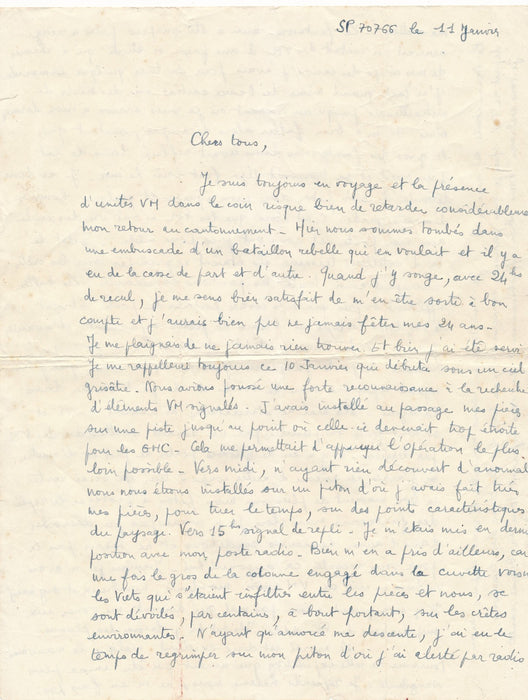 SP 70766 le 11 Janvier
Chers tous,
Je suis toujours en voyage et la présence
d'unités VM dans le coin risque bien de retarder considérablement
mon retour au cantonnement - Hier nous sommes tombés dans
une embuscade d'un bataillon rebelle qui en voulait et il y a
eu de la casse de part et d'autre. Quand j'y songe, avec 24 hs
de recul, je me sens bien satisfait de m'en être sorti à bon
compte et j'aurais bien pu ne jamais fêter mes 24 ans -
Je me plaignais de ne jamais rien trouver. Et bien j'ai été servi
Je me rappellerai toujours ce 10 Janvier qui débuta sous un ciel
grisâtre. Nous avions poussé une forte reconnaissance à la recherche
d'éléments VM signalés. J'avais installé au passage mes pièces
sur une piste jusqu'au point où celle-ci devenait trop étroite
pour les GMC - Cela me permettait d'appuyer l'opération le plus
loin possible - Vers midi, n'ayant rien découvert d'anormal
nous nous étions installés sur un piton d'où j'avais fait tirer
mes pièces, pour tuer le temps, sur des points caractéristiques
du paysage. Vers 15 hs signal de repli - Je m'étais mis en dern
position avec mon poste radio - Bien m'en a pris d'ailleurs, car
une fois le gros de la colonne engagé dans la cuvette
les Viets qui s'étaient infiltrés entre les pièces et nous, se
sont dévoilés, par centaines, à bout portant, sur les crêtes
environnantes - N'ayant qu'amorcé ma descente, j'ai eu le
temps de regrimper sur mon piton d'où j'ai alerté par radio